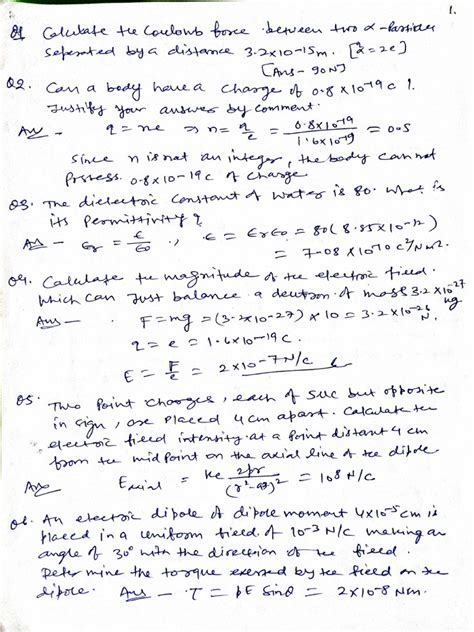 1.
Q1 Calculate the Coulomb force between two α-Particles
seperated by a distance 3.2x10-15m. [α=2e]
[Ans - 90N]
Q2. Can a body have a charge of 0.8 x 10-19 c !.
Justify your answer by comment.
Ans - q = ne ⇒ n = q/e = 0.8x10-19/1.6x10-19 = 0.5
Since n is not an integer, the body can not
Possess 0.8x10-19c of charge
Q3. The dielectric Constant of water is 80. What is
its Permittivity ?
Ans - εr = ε/ε0 ., ε = εrε0 = 80(8.85x10-12)
= 7.08 x10-10 c2/Nm2.
Q4. Calculate the magnitude of the electric field
which can Just balance a deutron of mass 3.2x10-27 kg
Ans - F = mg = (3.2x10-27) x 10 = 3.2x10-26 N.
q = e = 1.6x10-19c.
E = F/e = 2x10-7N/C
Q5. Two Point charges, each of 5uc but opposite
in sign, are placed 4cm apart. Calculate the
electric field intensity at a Point distant 4 cm
from the mid point on the axial line of the dipole
Ans Eaxial = ke 2pr/(r2-a2)2 = 108 N/C
Q6. An electric dipole of dipole moment 4x10-5 cm is
placed in a uniform field of 10-3 N/C making an
angle of 30° with the direction of the field.
Determine the torque exerted by the field on the
dipole. Ans - T = PE Sinθ = 2x10-8 Nm.